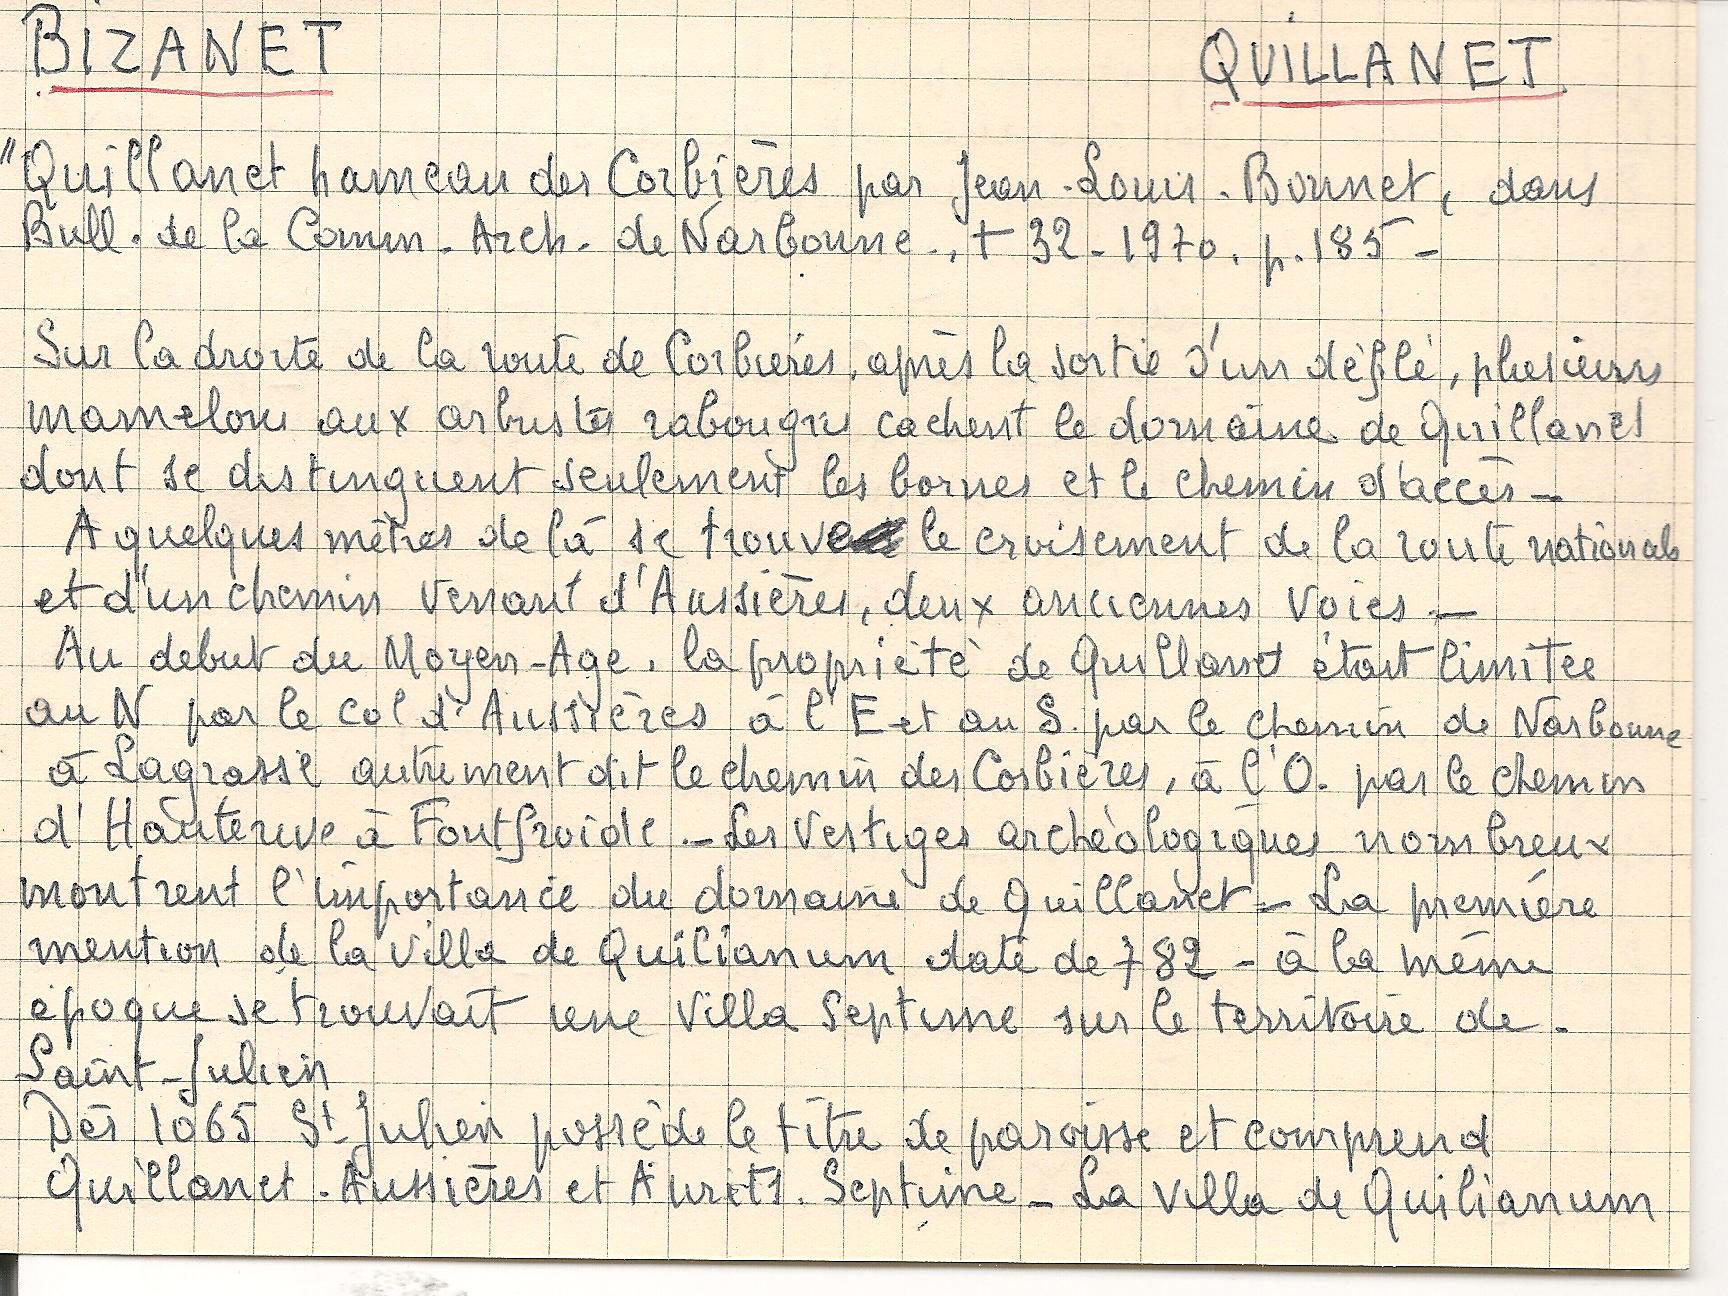 BIZANET QUILLANET
"Quillanet hameau des Corbières par Jean-Louis-Bonnet, dans
Bull. de la Comm. Arch. de Narbonne., t 32-1970. p.185-
Sur la droite de la route de Corbières, après la sortie d'un défilé, plusieurs
mamelons aux arbustes rabougris cachent le domaine de Quillanet
dont se distinguent seulement les bornes et le chemin d'accès-
A quelques mètres de là se trouve le croisement de la route nationale
et d'un chemin venant d'Aussières, deux anciennes voies-
Au début du Moyen-Age, la propriété de Quillanet était limitée
au N par le col d'Aussières à l'E et au S. par le chemin de Narbonne
à Lagrasse autrement dit le chemin des Corbières, à l'O. par le chemin
d'Hauterive à Fontfroide.-Les vestiges archéologiques nombreux
montrent l'importance du domaine de Quillanet- La première
mention de la villa de Quilianum date de 782 - à la même
époque se trouvait une villa Septime sur le territoire de.
Saint-Julien
Dès 1065 St Julien possède le titre de paroisse et comprend
Quillanet. Aussières et Septime- La villa de Quilianum